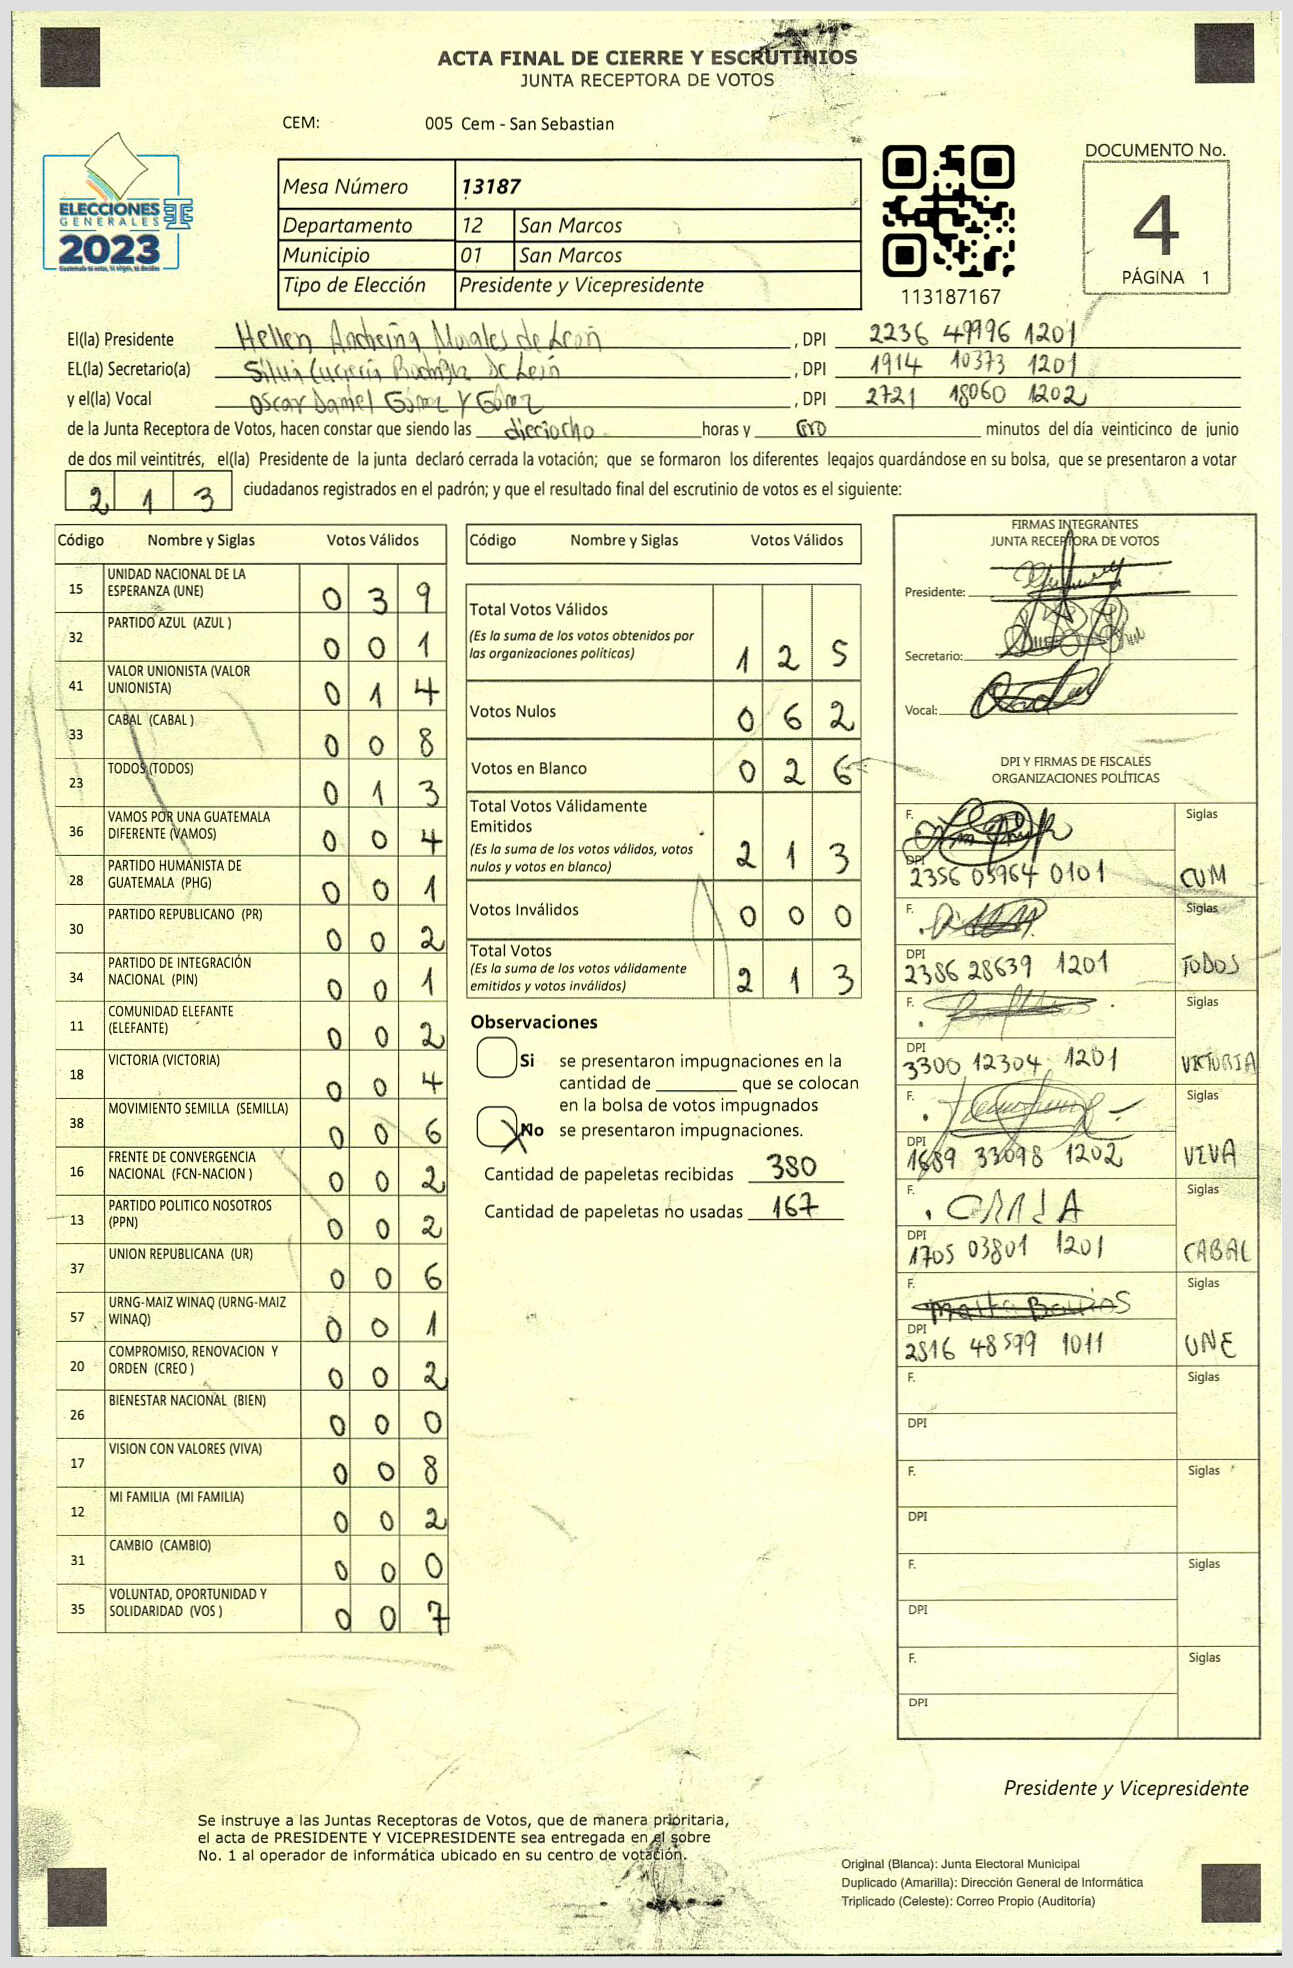 ACTA FINAL DE CIERRE Y ESCRUTINIOS
JUNTA RECEPTORA DE VOTOS
CEM: 005 Cem - San Sebastian
ELECCIONES
GENERALES
2023
Mesa Número 13187
Departamento 12 San Marcos
Municipio 01 San Marcos
Tipo de Elección Presidente y Vicepresidente
113187167
DOCUMENTO No.
4
PÁGINA 1
El(la) Presidente Hellen Morales de León, DPI 2236 49996 1201
EL(la) Secretario(a) de León, DPI 1914 10373 1201
y el(la) Vocal Oscar Daniel Gómez y Gómez, DPI 2721 18060 1202
de la Junta Receptora de Votos, hacen constar que siendo las dieciocho horas y cero minutos del día veinticinco de junio
de dos mil veintitrés, el(la) Presidente de la junta declaró cerrada la votación; que se formaron los diferentes legajos quardándose en su bolsa, que se presentaron a votar
213 ciudadanos registrados en el padrón; y que el resultado final del escrutinio de votos es el siguiente:
Código Nombre y Siglas Votos Válidos
15 UNIDAD NACIONAL DE LA ESPERANZA (UNE) 0 3 9
32 PARTIDO AZUL (AZUL ) 0 0 1
41 VALOR UNIONISTA (VALOR UNIONISTA) 0 1 4
33 CABAL (CABAL ) 0 0 8
23 TODOS (TODOS) 0 1 3
36 VAMOS POR UNA GUATEMALA DIFERENTE (VAMOS) 0 0 4
28 PARTIDO HUMANISTA DE GUATEMALA (PHG) 0 0 1
30 PARTIDO REPUBLICANO (PR) 0 0 2
34 PARTIDO DE INTEGRACIÓN NACIONAL (PIN) 0 0 1
11 COMUNIDAD ELEFANTE (ELEFANTE) 0 0 2
18 VICTORIA (VICTORIA) 0 0 4
38 MOVIMIENTO SEMILLA (SEMILLA) 0 0 6
16 FRENTE DE CONVERGENCIA NACIONAL (FCN-NACION ) 0 0 2
13 PARTIDO POLITICO NOSOTROS (PPN) 0 0 2
37 UNION REPUBLICANA (UR) 0 0 6
57 URNG-MAIZ WINAQ (URNG-MAIZ WINAQ) 0 0 1
20 COMPROMISO, RENOVACION Y ORDEN (CREO ) 0 0 2
26 BIENESTAR NACIONAL (BIEN) 0 0 0
17 VISION CON VALORES (VIVA) 0 0 8
12 MI FAMILIA (MI FAMILIA) 0 0 2
31 CAMBIO (CAMBIO) 0 0 0
35 VOLUNTAD, OPORTUNIDAD Y SOLIDARIDAD (VOS ) 0 0 7
Código Nombre y Siglas Votos Válidos
Total Votos Válidos 1 2 5
(Es la suma de los votos obtenidos por
las organizaciones políticas)
Votos Nulos 0 6 2
Votos en Blanco 0 2 6
Total Votos Válidamente
Emitidos 2 1 3
(Es la suma de los votos válidos, votos
nulos y votos en blanco)
Votos Inválidos 0 0 0
Total Votos 2 1 3
(Es la suma de los votos válidamente
emitidos y votos inválidos)
Observaciones
Si se presentaron impugnaciones en la
cantidad de que se colocan
en la bolsa de votos impugnados
No se presentaron impugnaciones.
Cantidad de papeletas recibidas 380
Cantidad de papeletas no usadas 167
FIRMAS INTEGRANTES
JUNTA RECEPTORA DE VOTOS
Presidente:
Secretario:
Vocal:
DPI Y FIRMAS DE FISCALES
ORGANIZACIONES POLÍTICAS
F. Siglas
DPI 2356 03964 0101 CUM
F. Siglas
DPI 2386 28639 1201 TODOS
F. Siglas
DPI 3300 12304 1201 VICTORIA
F. Siglas
DPI 1689 33098 1202 VIVA
F. Siglas
DPI 1705 03801 1201 CABAL
F. Marta Barrios Siglas
DPI 2816 48599 1011 UNE
F. Siglas
DPI
F. Siglas
DPI
F. Siglas
DPI
F. Siglas
DPI
Presidente y Vicepresidente
Se instruye a las Juntas Receptoras de Votos, que de manera prioritaria,
el acta de PRESIDENTE Y VICEPRESIDENTE sea entregada en el sobre
No. 1 al operador de informática ubicado en su centro de votación.
Original (Blanca): Junta Electoral Municipal
Duplicado (Amarilla): Dirección General de Informática
Triplicado (Celeste): Correo Propio (Auditoría)